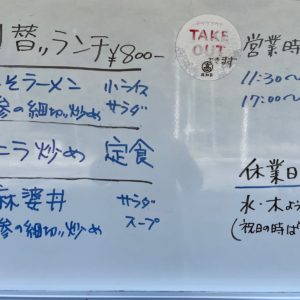 替ッランチ ¥800-
そラーメン 小ライス
参の細切ッ炒め サラダ
ニラ炒め 定食
麻婆丼 サラダ
参の細切ッ炒め スープ
TAKE
OUT
できます
営業時
11:30〜
17:00〜
休業日
水・木よう
(祝日の時は